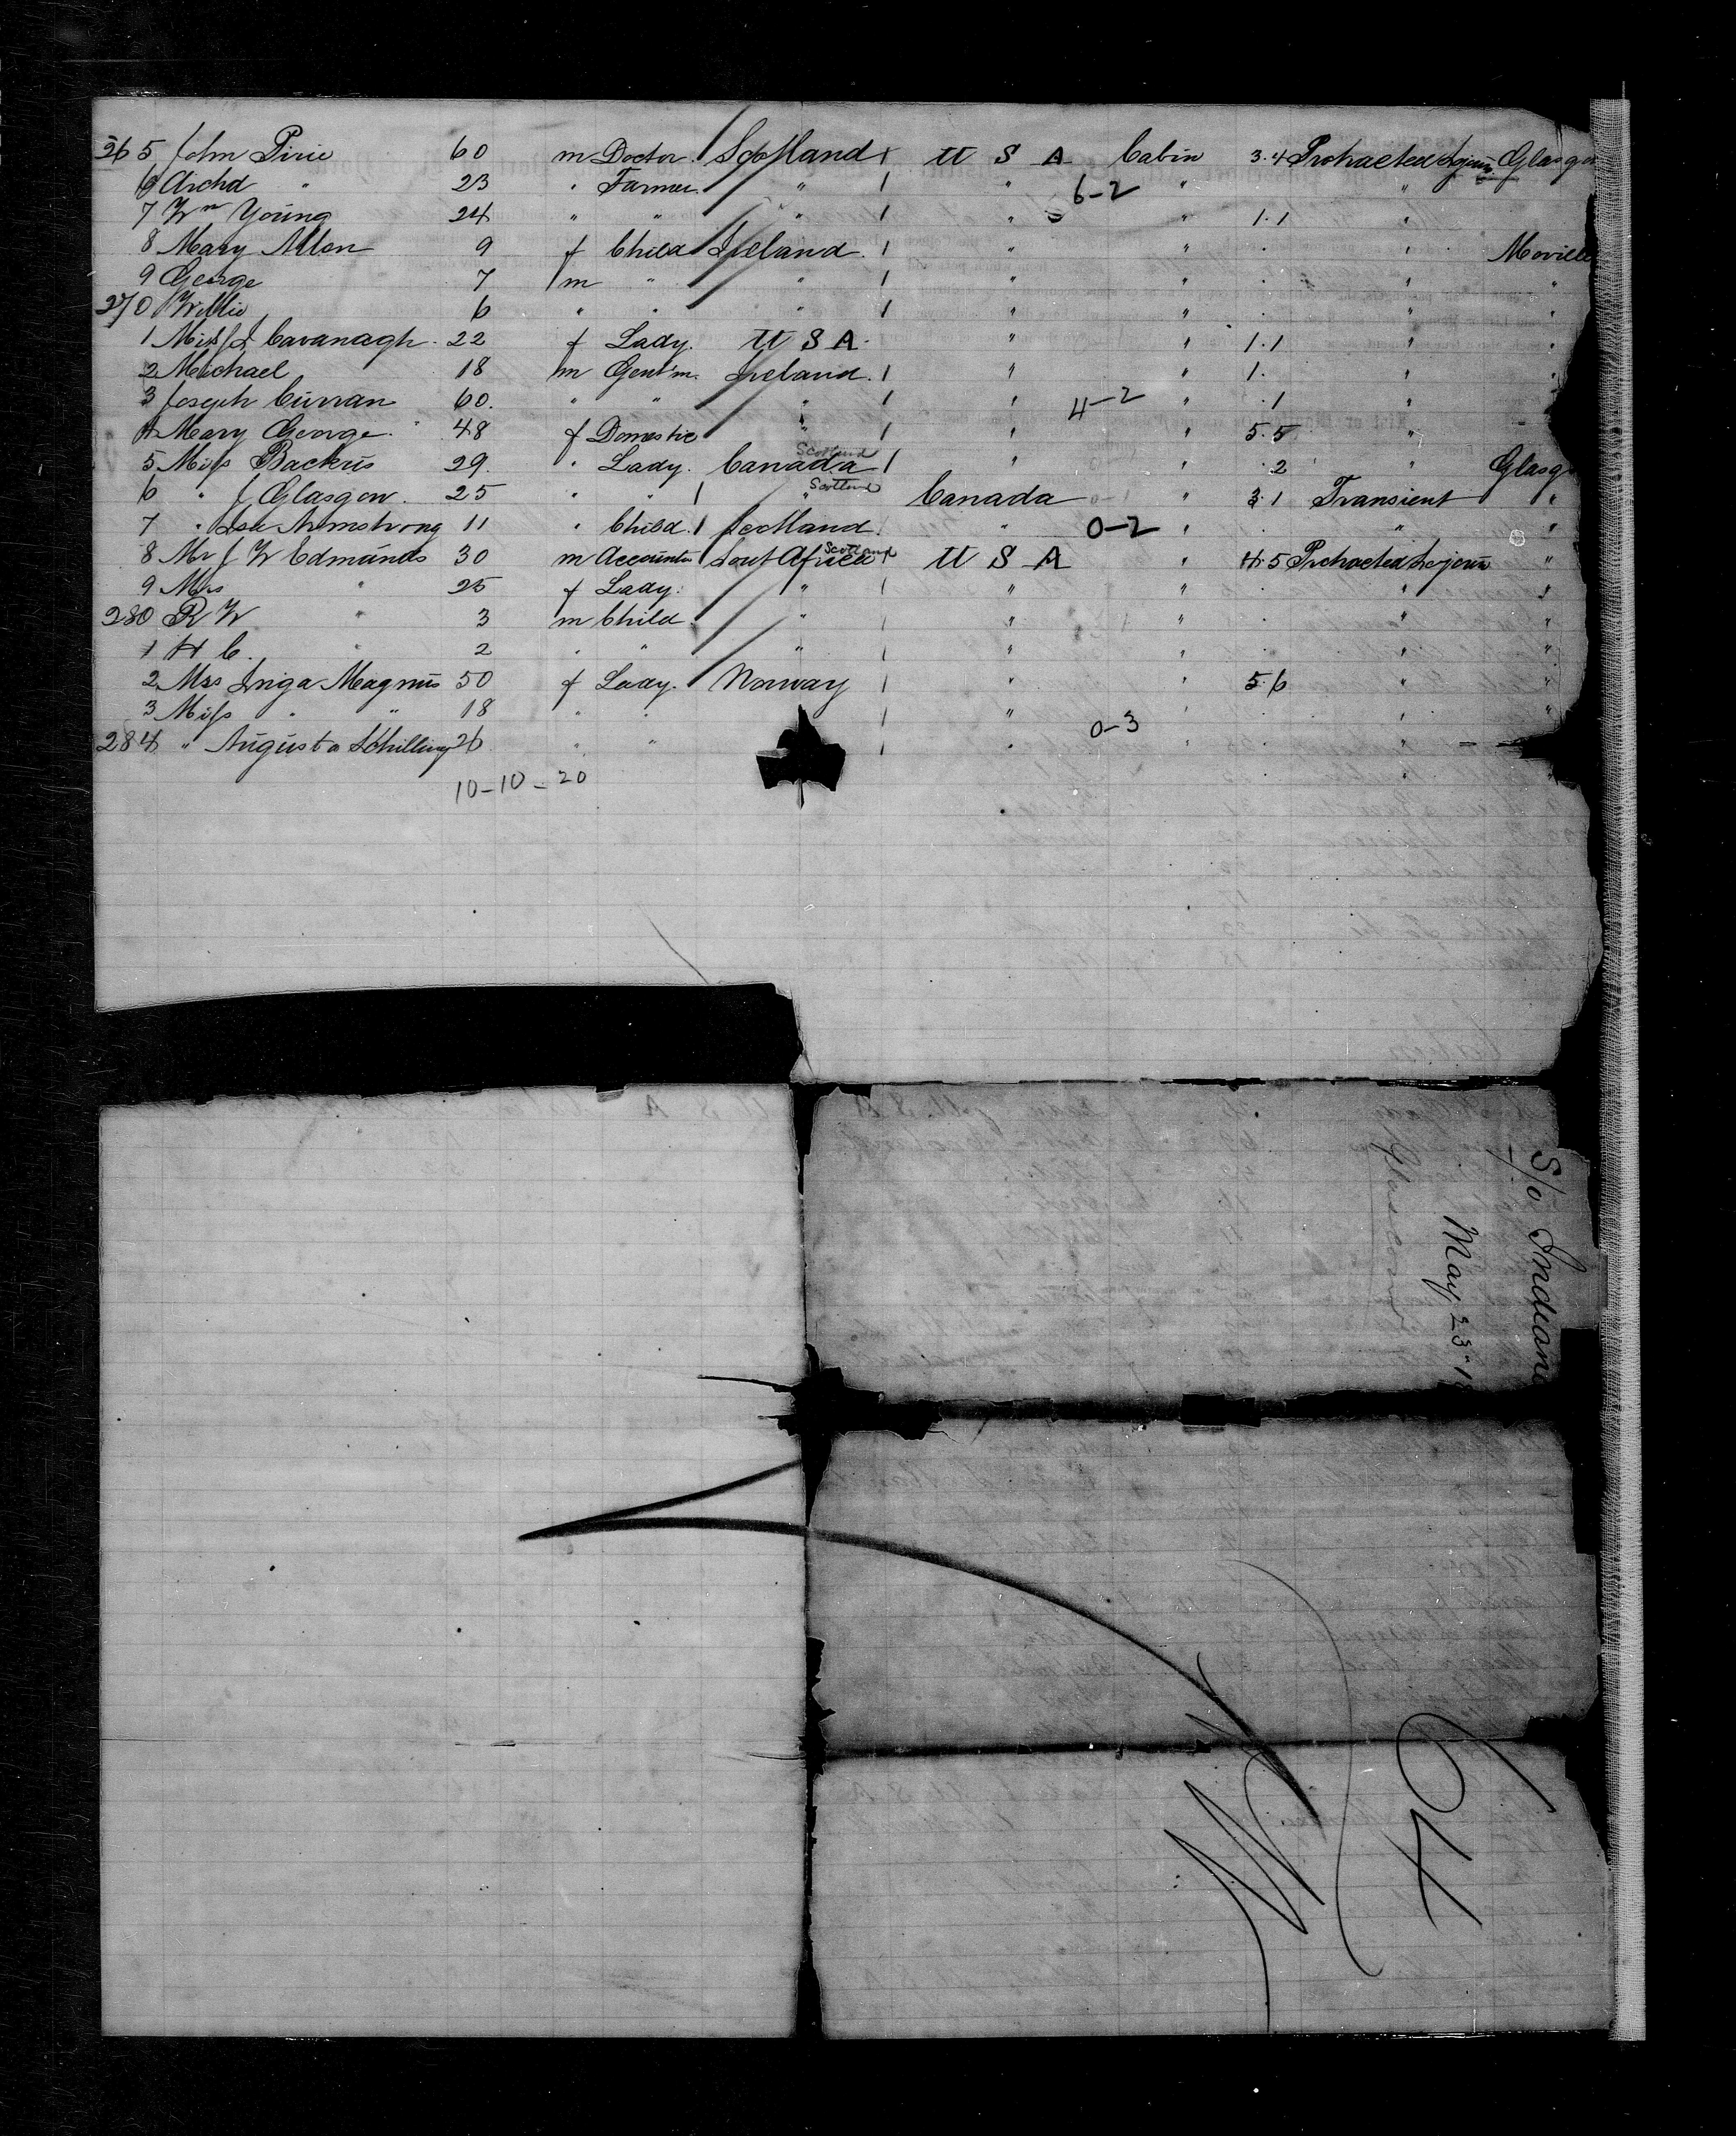 265 John Pirie 60 m Doctor Scotland 1 U S A Cabin 3.4 Protracted Sojourn Glasgo
6 Archd " 23 " Farmer " 1 " 6-2 " "
7 Wm Young 24 " " " 1 " " 1.1 "
8 Mary Allen 9 f Child Ireland 1 " " . " Moville
9 George 7 m " " 1 " " . " "
270 Willie 6 " " " 1 " " . " "
1 Miss Cavanagh 22 f Lady U S A " " 1.1 " "
2 Michael 18 m Gent'm Ireland 1 " " 1. " "
3 Joseph Curran 60 " " " 1 " 4-2 " .1 " "
4 Mary George 48 f Domestic " 1 " " 5.5 "
5 Miss Backus 29 " Lady Canada Scotland 1 " " .2 " Glasg
6 " J Glasgow 25 " " 1 " Scotland Canada " 3.1 Transient "
7 " Armstrong 11 " Child 1 Scotland " 0-2 " . " "
8 Mr J W Edmunds 30 m Accountn Sout Africa Scotland 1 U S A " 4.5 Protracted Sojourn "
9 Mrs " 25 f Lady " 1 " " . " "
280 R W " 3 m Child " 1 " " . " "
1 H C " 2 " " " 1 " " . " "
2 Mrs Inga Magnus 50 f Lady Norway 1 " " 5.6 " "
3 Miss " " 18 " " 1 " " . " "
284 " Augusta Schilling 26 " " 1 " 0-3 " . "
10-10-20
S/s Indiana
May 23" 1
Glasgow
64